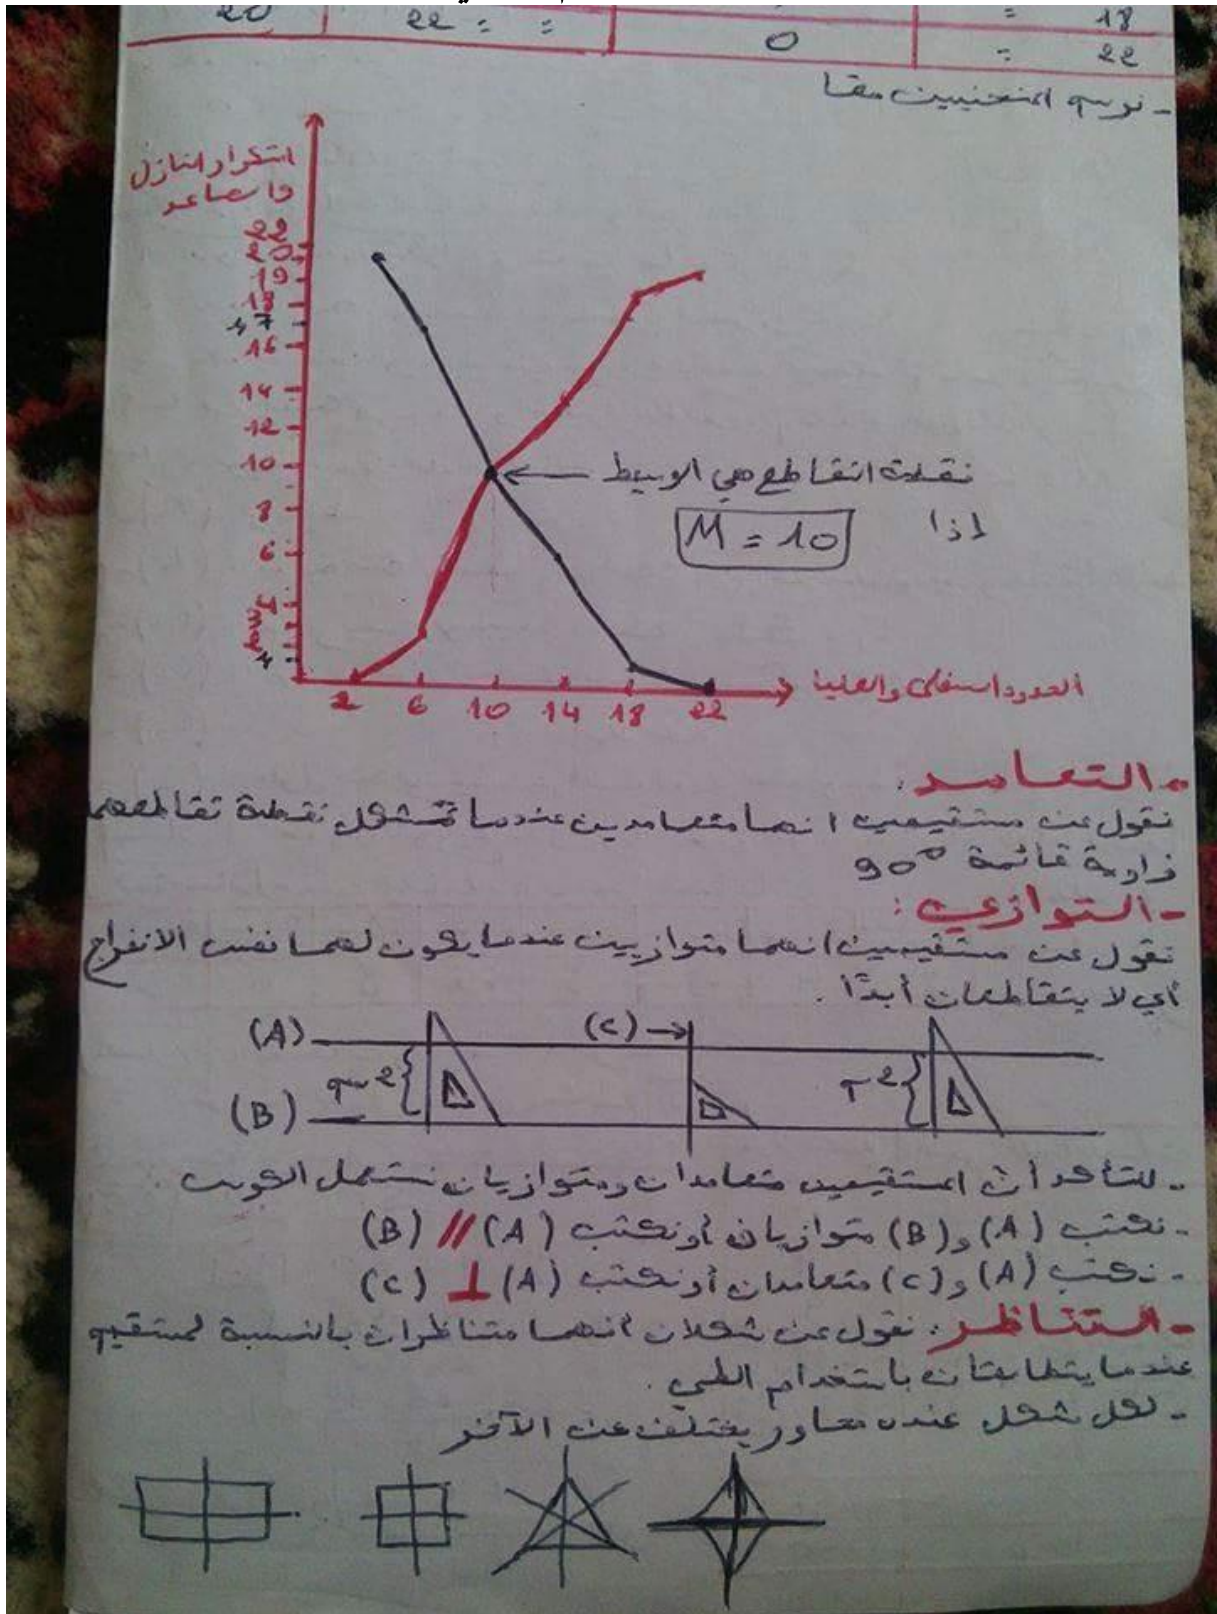 18 = 22 = = 20
22 = 0
- نرسم المنحنيين معا
التكرار النازل
والصاعد
22
20
19
18
17
16
14
12
10
8
6
4
1
نقطة التقاطع هي الوسيط
اذا M = 10
2 6 10 14 18 22
الحدود السفلى والعليا
- التعامد:
نقول عن مستقيمين انهما متعامدين عندما تتشكل نقطة تقاطعهما
زاوية قائمة 90°
- التوازي:
نقول عن مستقيمين انهما متوازيين عندما يكون لهما نفس الانفراج
أي لا يتقاطعان أبدًا.
(A) (C)
2 2
(B)
- للتأكد أن المستقيمين متعامدان ومتوازيان نستعمل الكوس.
- نكتب (A) و(B) متوازيان أو نكتب (A) // (B)
- نكتب (A) و(C) متعامدان أو نكتب (A) ⊥ (C)
- التناظر: نقول عن شكلان أنهما متناظران بالنسبة لمستقيم
عندما يتطابقان باستخدام الطي.
- لكل شكل عنده محاور يختلف عن الآخر